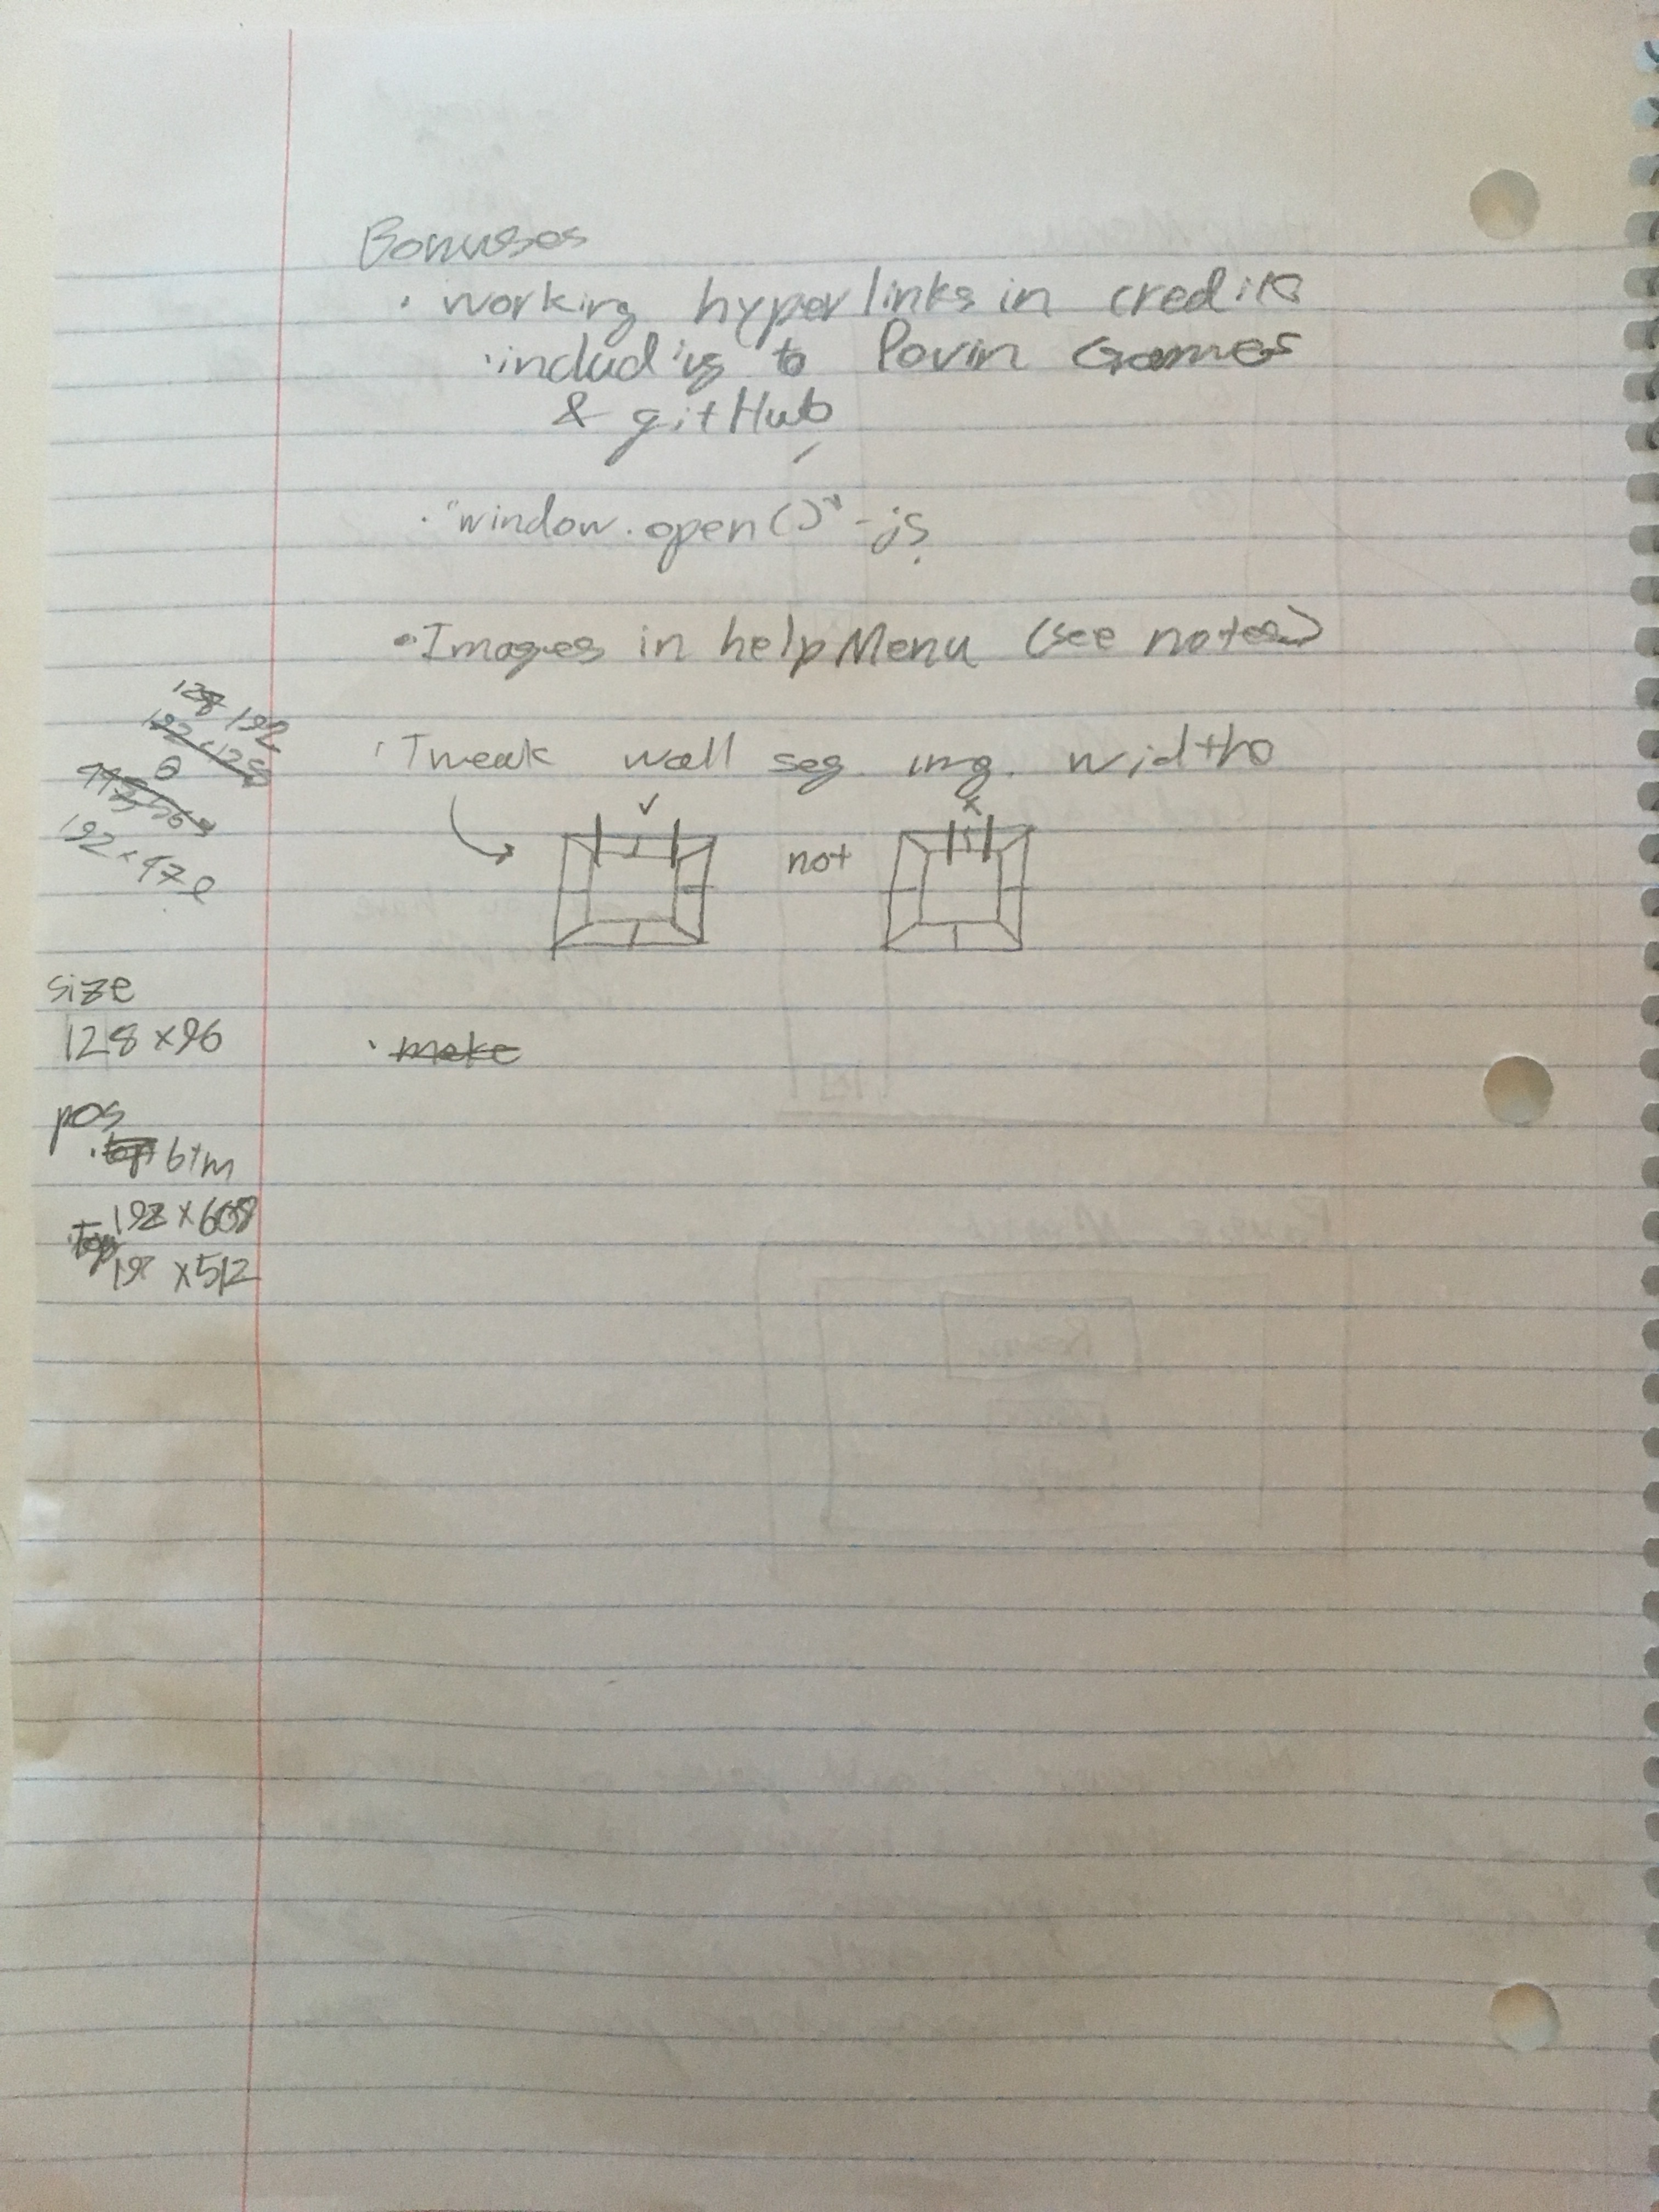 Bonuses
· working hyperlinks in credits
· includ'ig to Povin Games
& gitHub
· "window.open()" - js
· Images in helpMenu (see notes)
· Tweak wall seg. img. widths
not
· make
128 192
192 × 128
192 × 47
size
128 × 96
pos
· top btm
192 × 608
· Top
192 × 512